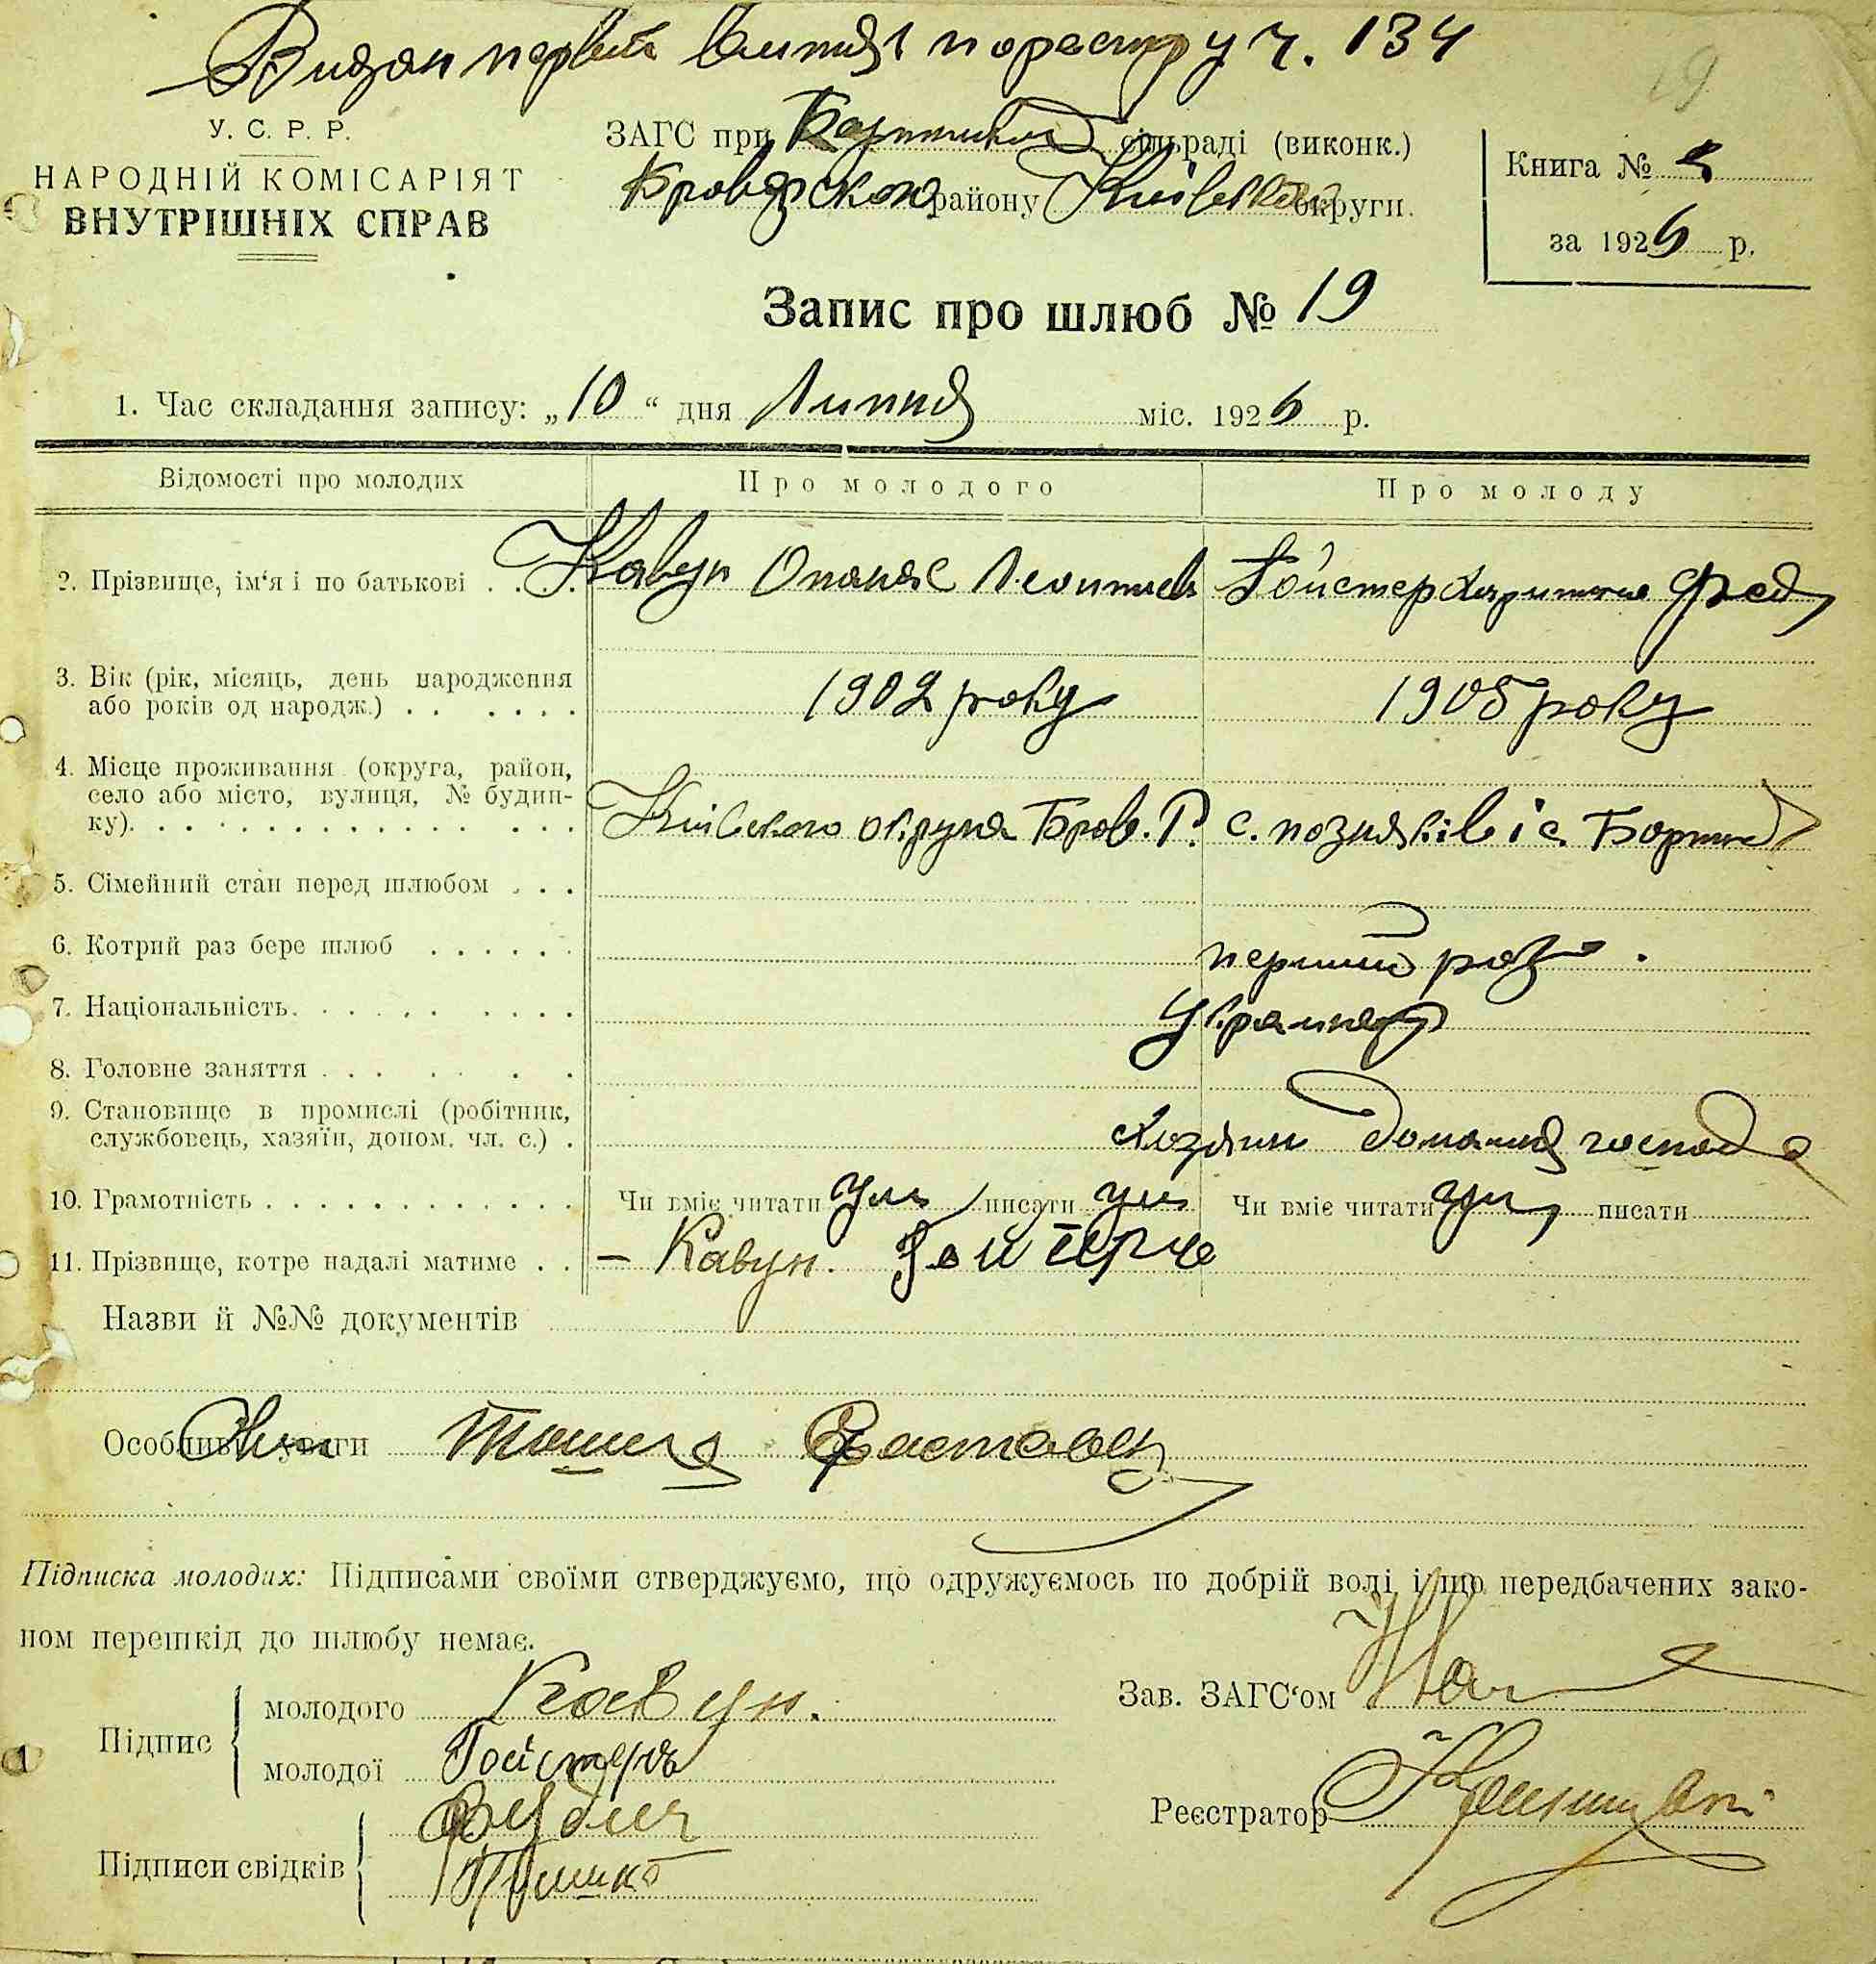 Видан первий витяг по реєстру ч. 134
19
У. С. Р. Р.
НАРОДНІЙ КОМІСАРІЯТ
ВНУТРІШНІХ СПРАВ
ЗАГС при сільраді (виконк.)
району Київської округи.
Книга №
за 1926 р.
Запис про шлюб № 19
1. Час складання запису: „10“ дня Липня міс. 1926 р.
Відомості про молодих Про молодого Про молоду
2. Прізвище, ім‘я і по батькові . . . . Кавун Опанас Леонтиев Гойстер Фед
3. Вік (рік, місяць, день народження
або років од народж.) . . . . . . 1902 року 1905 року
4. Місце проживання (округа, район,
село або місто, вулиця, № будин-
ку). . . . . . . . . . . . . . . Київська округа Бров. Р. с. позняків і с.
5. Сімейний стан перед шлюбом . . .
6. Котрий раз бере шлюб . . . . . . перший раз
7. Національність. . . . . . . . . .
8. Головне заняття . . . . . .
9. Становище в промислі (робітник,
службовець, хазяїн, допом. чл. с.) . Хозяин домашня господ
10. Грамотність . . . . . . . . . . . . Чи вміє читати писати Чи вміє читати писати
11. Прізвище, котре надалі матиме . . – Кавун.
Назви й №№ документів
Особливі уваги
Підписка молодих: Підписами своїми стверджуємо, що одружуємось по добрій волі і що передбачених зако-
ном перешкід до шлюбу немає.
Підпис
молодого Кавун.
молодої Гойстеръ
Зав. ЗАГС‘ом
Реєстратор
Підписи свідків